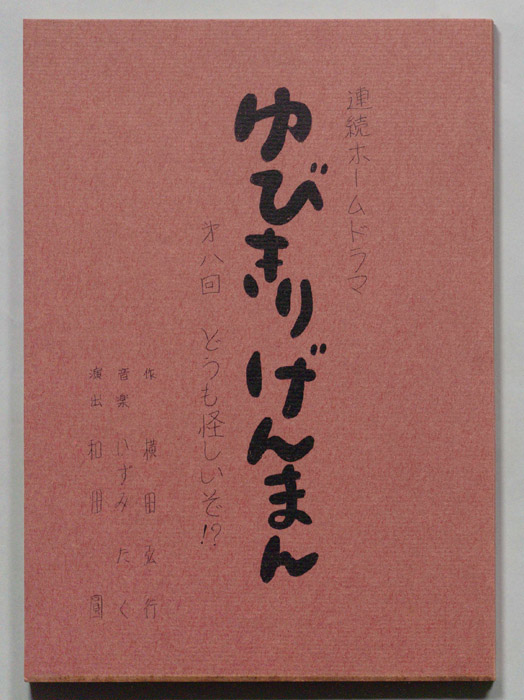 連続ホームドラマ
ゆびきりげんまん
才八回 どうも怪しいぞ!?
作 横田弘行
音楽 いずみたく
演出 和田